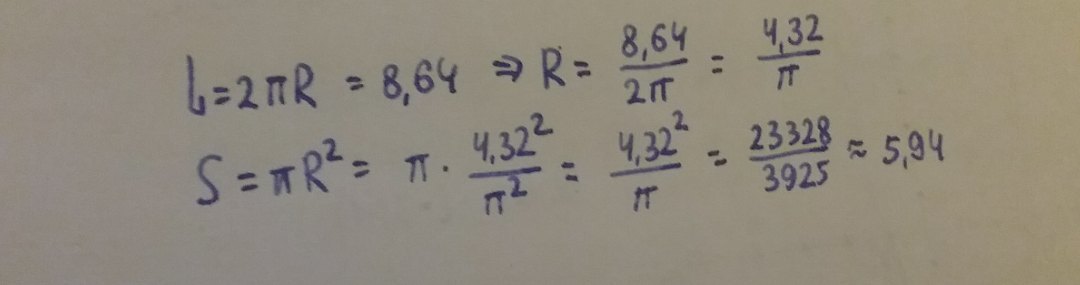 L=2πR = 8,64 ⇒ R = 8,64/2π = 4,32/π
S = πR² = π · 4,32²/π² = 4,32²/π = 23328/3925 ≈ 5,94